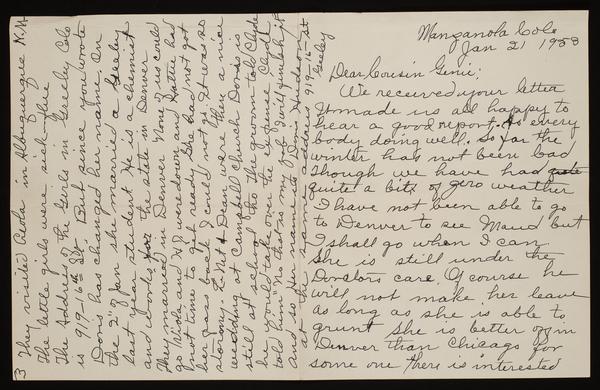 Manzanola Colo
Jan 21 1958
Dear Cousin Genie;
We received your letter
It made us all happy to
hear a good report. As every
body doing well. So far the
winter has not been bad
Though we have had quite
quite a bits of zero weather
I have not been able to go
to Denver to see Maud but
I shall go when I can
She is still under the
Doctors care. Of course he
will not make her leave
as long as she is able to
grunt she is better off in
Denver than Chicago for
some one there is interested
3 They visited Reola in Albuquerque N.M
The little girls were sick – flue
The Address of the Girls in Greeley Colo
is 919-16th St. But since you wrote
Doris has changed her name. On
the 2nd of Jan she married a Greeley
last year student. He is a chemist
and works for the state in Denver
They married in Denver. None of us could
go. Nisha and I were down and Hattie had
not time to get ready. She had not got
her pass back. I could not go. It was so
stormy. LaNet & Dean were there a nice
wedding at Campbell Church. Doris is
still at school tho the groom told Clyde
he would take over the expense. Clyde
told him "No that is my job I will finish it"
and so Her name is Doris Hudson,
at the same address 919-16th St
Greeley